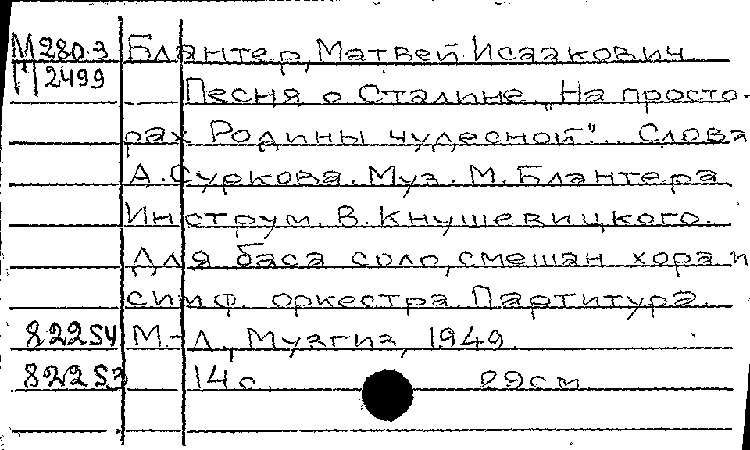 М280.3 Блантер, Матвей Исаакович
П2499 Песня о Сталине „На просто-
рах Родины чудесной". Слова
А. Суркова. Муз. М. Блантера
Инструм. В. Кнушевицкого.
Для баса соло, смешан хора и
симф. оркестра. Партитура.
82254 М.-Л., Музгиз, 1949.
82253 14 с. 29см.